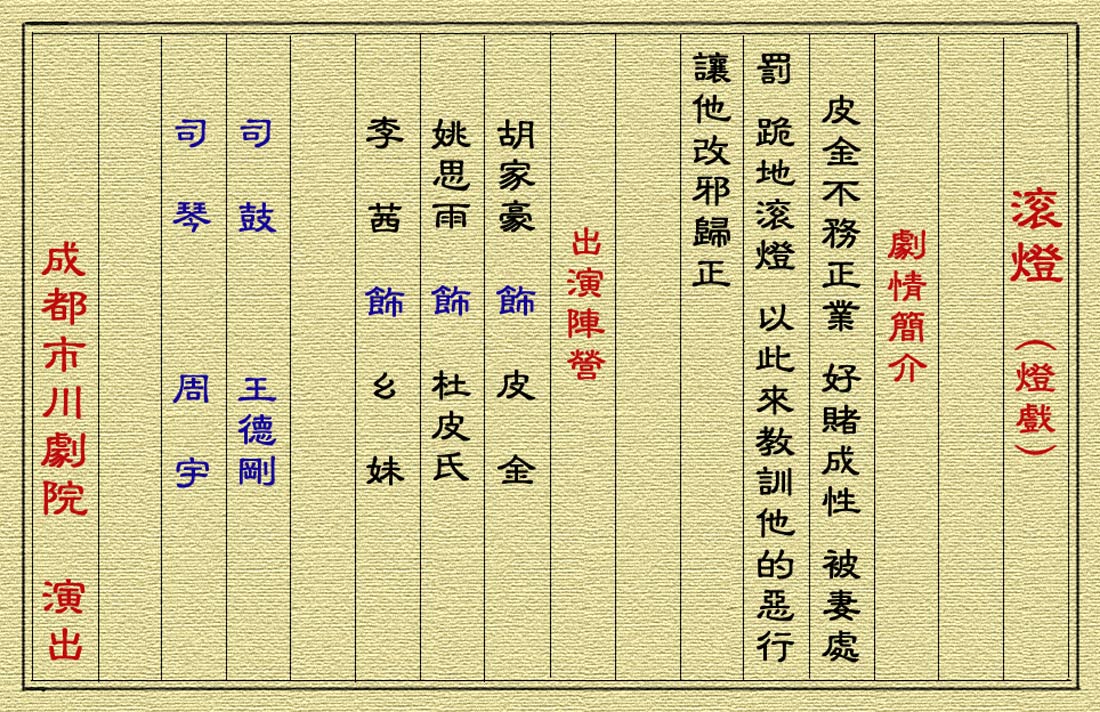 滚燈 （燈戲）
劇情簡介
皮金不務正業 好賭成性 被妻處
罰 跪地滚燈 以此來教訓他的惡行
讓他改邪歸正
出演陣營
胡家豪 飾 皮 金
姚思雨 飾 杜皮氏
李 茜 飾 幺 妹
司 鼓 王德剛
司 琴 周 宇
成都市川劇院 演出